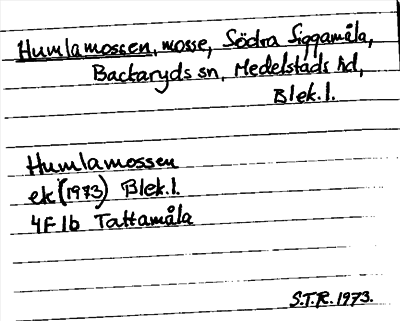 Humlamossen, mosse, Södra Siggamåla,
Backaryds sn, Medelstads hd,
Blek.l.
Humlamossen
ek (1973) Blek.l.
4F 1b Tattamåla
S.T.R. 1973.